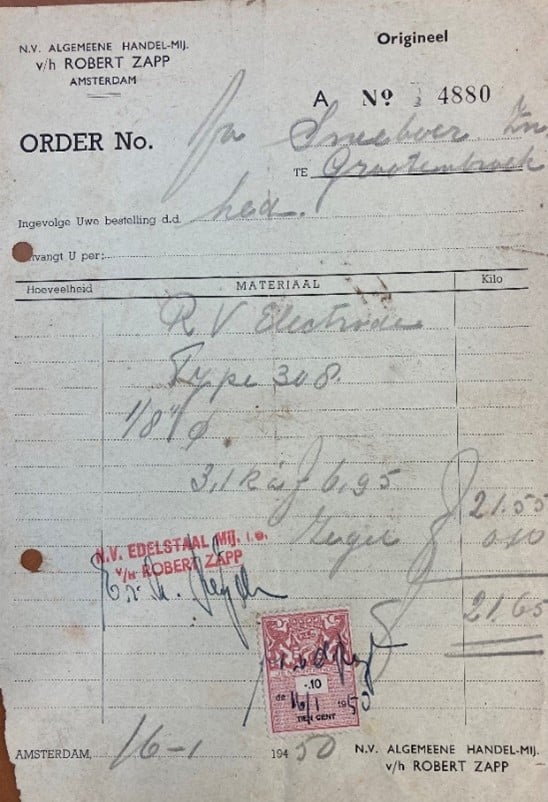 N.V. ALGEMEENE HANDEL-MIJ.
v/h ROBERT ZAPP
AMSTERDAM
Origineel
A No 4880
ORDER No. fa Sneeboer Zn
TE Grootenbroek
Ingevolge Uwe bestelling d.d. hed.
vangt U per:
Hoeveelheid MATERIAAL Kilo
R V Electrode
Type 308.
1/8" ø
3,1 K á f 6,95 21.55
Zegel 0.10
21.65
N.V. EDELSTAAL Mij. i.o.
v/h ROBERT ZAPP
-.10
de 16/1 1950
TIEN CENT
AMSTERDAM, 16-1 194 50
N.V. ALGEMEENE HANDEL-MIJ.
v/h ROBERT ZAPP